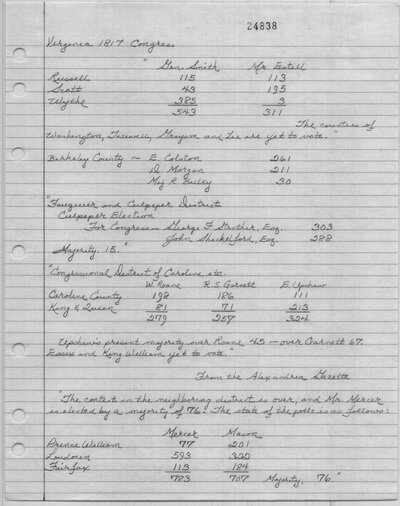 24838
Virginia 1817 Congress
" Gen. Smith Mr. Estill
Russell 115 113
Scott 43 195
Wythe 385 3
543 311
The counties of
Washington, Tazewell, Grayson and Lee are yet to vote."
Berkeley County — E. Colston 261
D. Morgan 211
Maj R. Bailey 30
"Fauquier and Culpeper District
Culpeper Election
For Congress — George F Strother, Esq. 303
John Shackelford, Esq. 288
Majority 15."
"Congressional District of Caroline, etc.
W. Roane R. S. Garnett E. Upshaw
Caroline County 198 186 111
King & Queen 81 71 213
279 257 324
Upshaw's present majority over Roane 45 — over Garnett 67.
Essex and King William yet to vote."
From the Alexandria Gazette
"The contest in the neighboring district is over, and Mr. Mercer
is elected by a majority of 76. The state of the polls is as follows:
Mercer Mason
Prince William 77 201
Loudoun 593 322
Fairfax 113 184
783 707 Majority, 76."